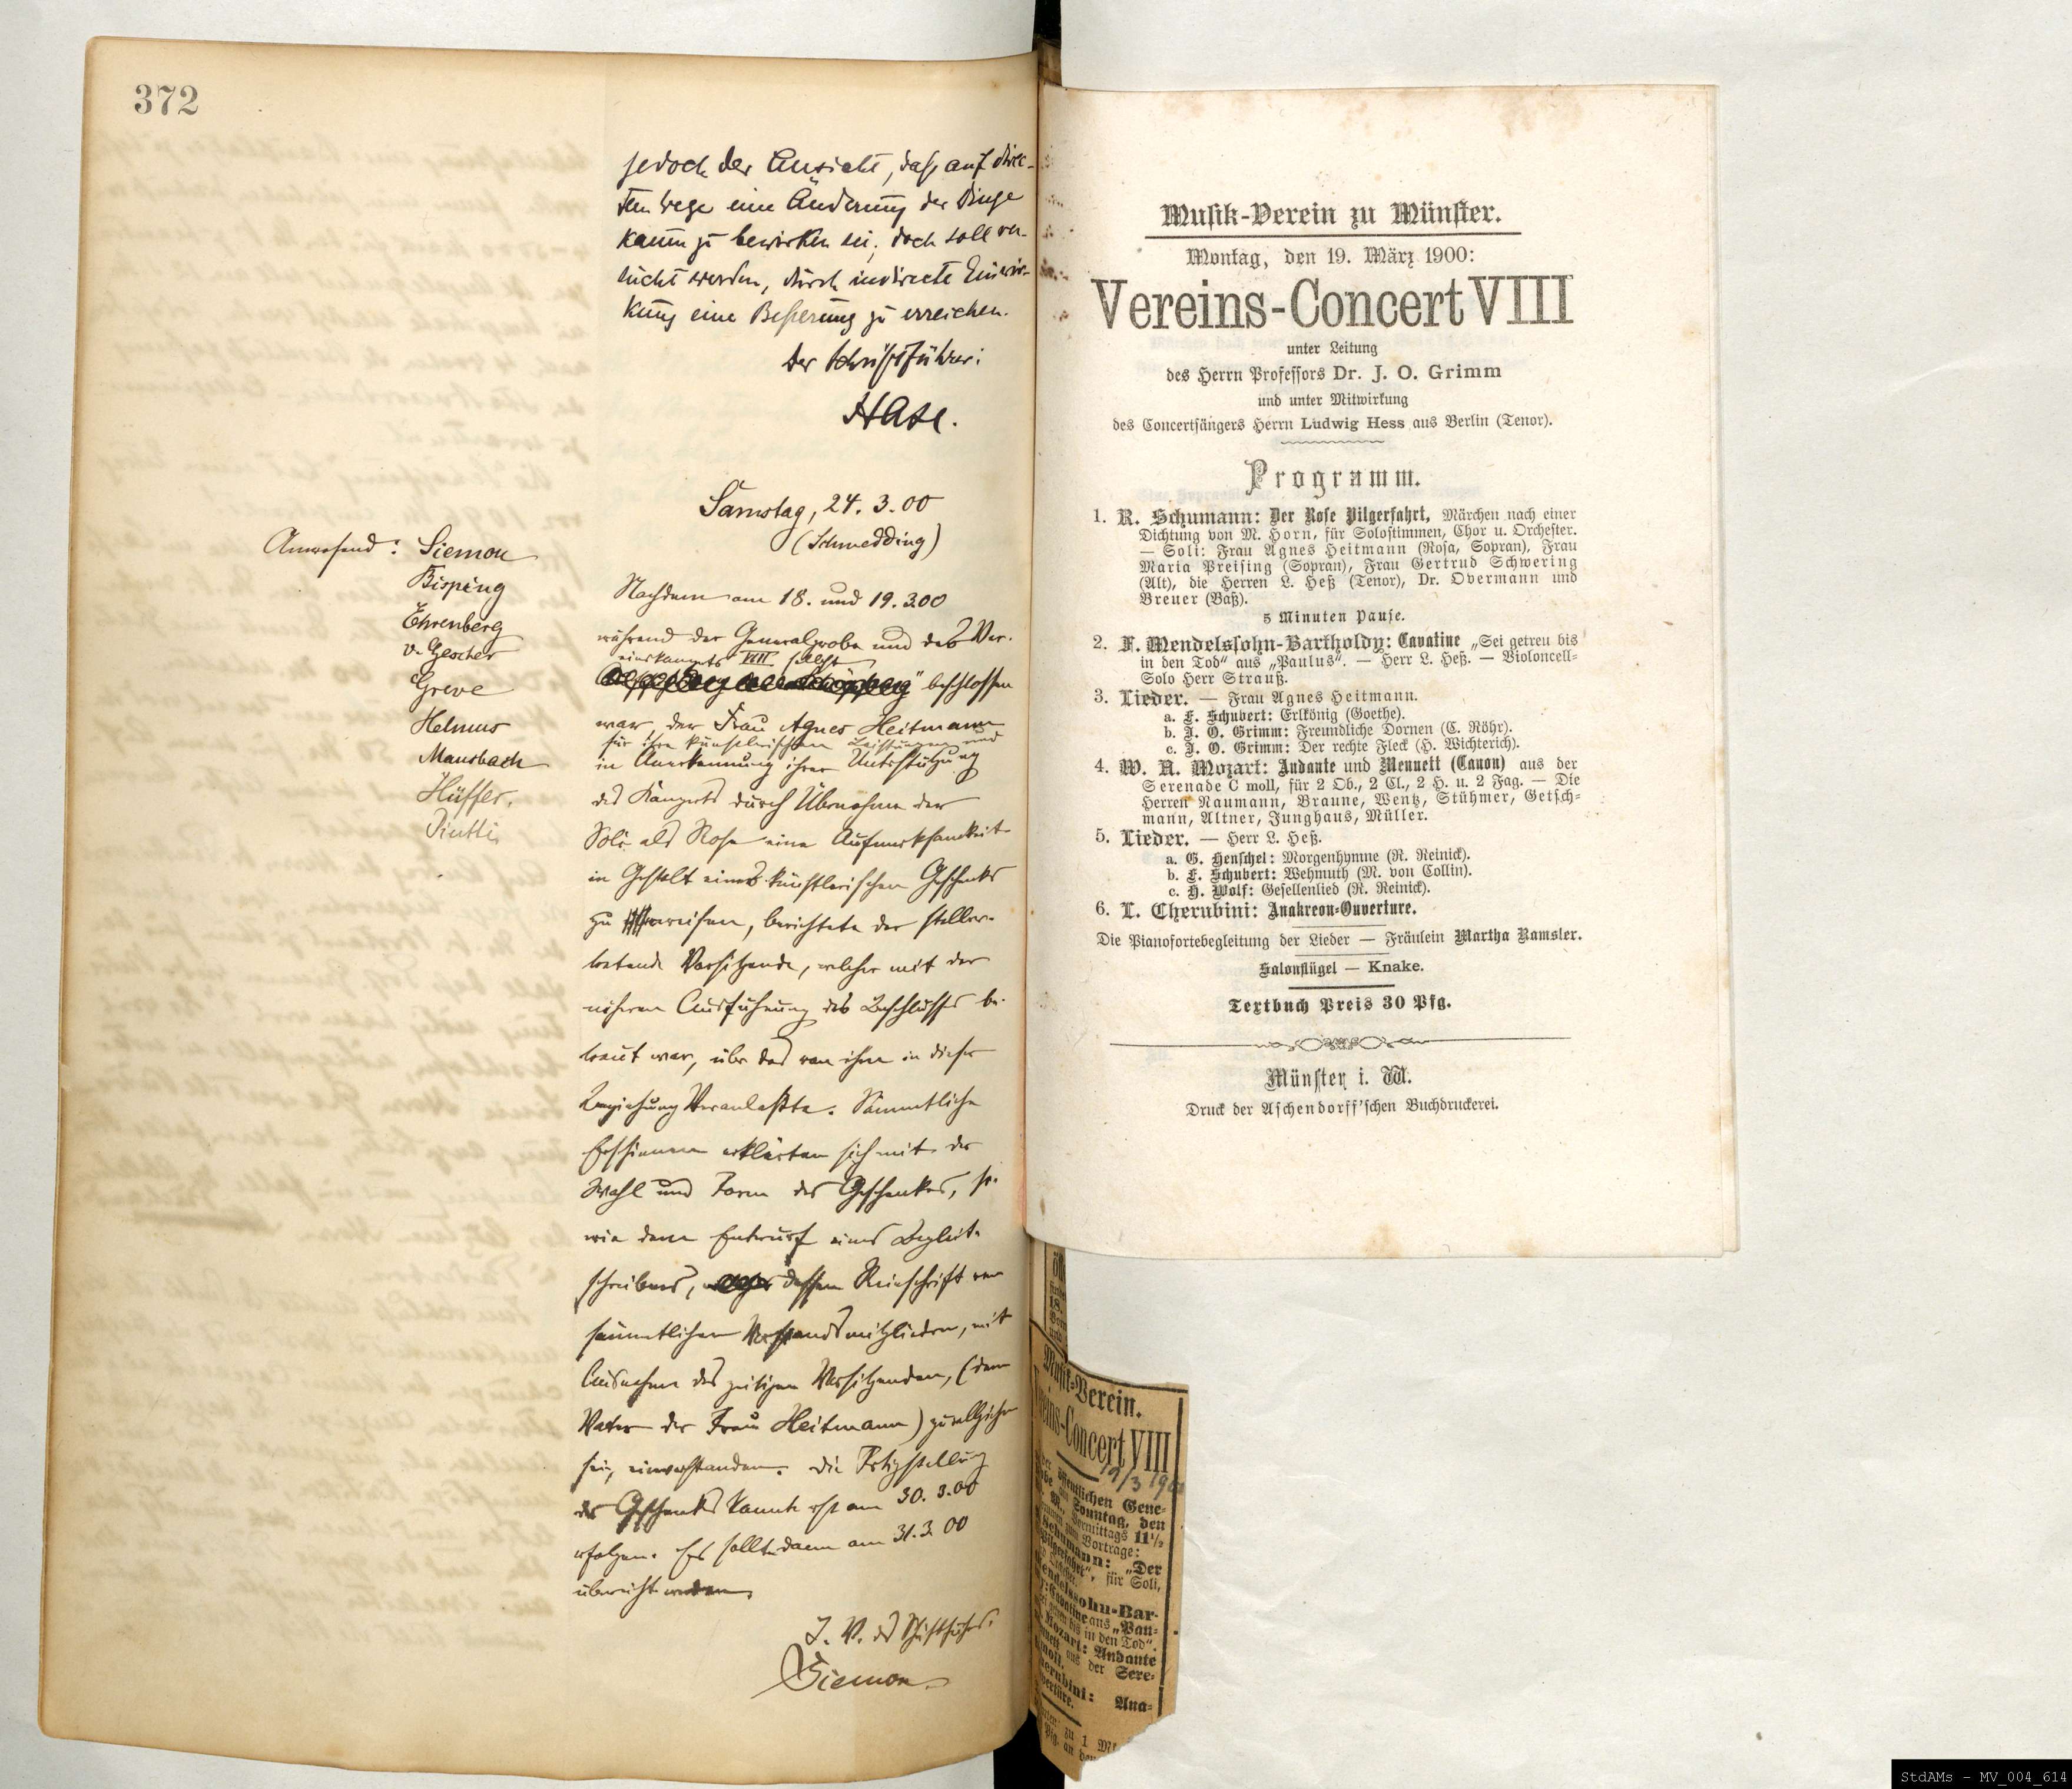 372
jedoch der Ansicht, daß auf direc-
tem Wege eine Änderung der Dinge
kaum zu bewirken sei; doch soll ver-
sucht werden, durch indirecte Einwir-
kung eine Beßerung zu erreichen.
Der Schriftführer:
Hase.
Samstag, 24. 3. 00
(Schmedding)
Anwesend: Siemon
Bisping
Ehrenberg
v. Gescher
Greve
Helmus
Mausbach
Hüffer.
Piutti.
Nachdem am 18. und 19. 3. 00
während der Generalprobe und des Ver-
einskonzerts VIII selbst
beschlossen
war, der Frau Agnes Heitmann
für ihre künstlerischen Leistungen und
in Anerkennung ihrer Unterstützung
des Konzerts durch Übernahme der
Soli als Rosa eine Aufmerksamkeit
in Gestalt eines künstlerischen Geschenks
zu erweisen, berichtete der stellver-
tretende Vorsitzende, welcher mit der
näheren Ausführung des Beschlusses be-
traut war, über das von ihm in dieser
Beziehung Veranlaßte. Sämmtliche
Erschienenen erklärten sich mit der
Wahl und Form des Geschenkes, so-
wie dem Entwurf eines Begleit-
schreibens, dessen Reinschrift von
sämmtlichen Vorstandsmitgliedern, mit
Ausnahme des zeitigen Vorsitzenden, (dem
Vater der Frau Heitmann) zu vollziehen
sei, einverstanden. Die Fertigstellung
des Geschenks konnte erst am 30. 3. 00
erfolgen. Es sollte dann am 31. 3. 00
überreicht werden.
I. V. des Schriftführers:
Siemon
Musik-Verein zu Münster.
Montag, den 19. März 1900:
Vereins-Concert VIII
unter Leitung
des Herrn Professors Dr. J. O. Grimm
und unter Mitwirkung
des Concertsängers Herrn Ludwig Hess aus Berlin (Tenor).
Programm.
1. R. Schumann: Der Rose Pilgerfahrt, Märchen nach einer
Dichtung von M. Horn, für Solostimmen, Chor u. Orchester.
— Soli: Frau Agnes Heitmann (Rosa, Sopran), Frau
Maria Preising (Sopran), Frau Gertrud Schwering
(Alt), die Herren L. Heß (Tenor), Dr. Overmann und
Breuer (Baß).
5 Minuten Pause.
2. F. Mendelssohn-Bartholdy: Cavatine „Sei getreu bis
in den Tod“ aus „Paulus“. — Herr L. Heß. — Violoncell-
Solo Herr Strauß.
3. Lieder. — Frau Agnes Heitmann.
a. F. Schubert: Erlkönig (Goethe).
b. J. O. Grimm: Freundliche Dornen (C. Röhr).
c. J. O. Grimm: Der rechte Fleck (H. Wichterich).
4. W. A. Mozart: Andante und Menuett (Canon) aus der
Serenade C moll, für 2 Ob., 2 Cl., 2 H. u. 2 Fag. — Die
Herren Naumann, Braune, Wentz, Stühmer, Getsch-
mann, Altner, Junghaus, Müller.
5. Lieder. — Herr L. Heß.
a. G. Henschel: Morgenhymne (R. Reinick).
b. F. Schubert: Wehmuth (M. von Collin).
c. H. Wolf: Gesellenlied (R. Reinick).
6. L. Cherubini: Anakreon-Ouverture.
Die Pianofortebegleitung der Lieder — Fräulein Martha Ramsler.
Salonflügel — Knake.
Textbuch Preis 30 Pfg.
Münster i. W.
Druck der Aschendorff'schen Buchdruckerei.
Musik-Verein.
Concert VIII
19/3 1900
öffentlichen Gene-
Sonntag, den
Vormittags 11½
Vortrage:
Schumann: „Der
Pilgerfahrt“, für Soli,
Mendelssohn-Bar-
Cavatine aus „Pau-
bis in den Tod“.
Mozart: Andante
aus der Sere-
moll.
Cherubini: Ana-
zu 1
Pfg. an den
StdAMs - MV_004_614